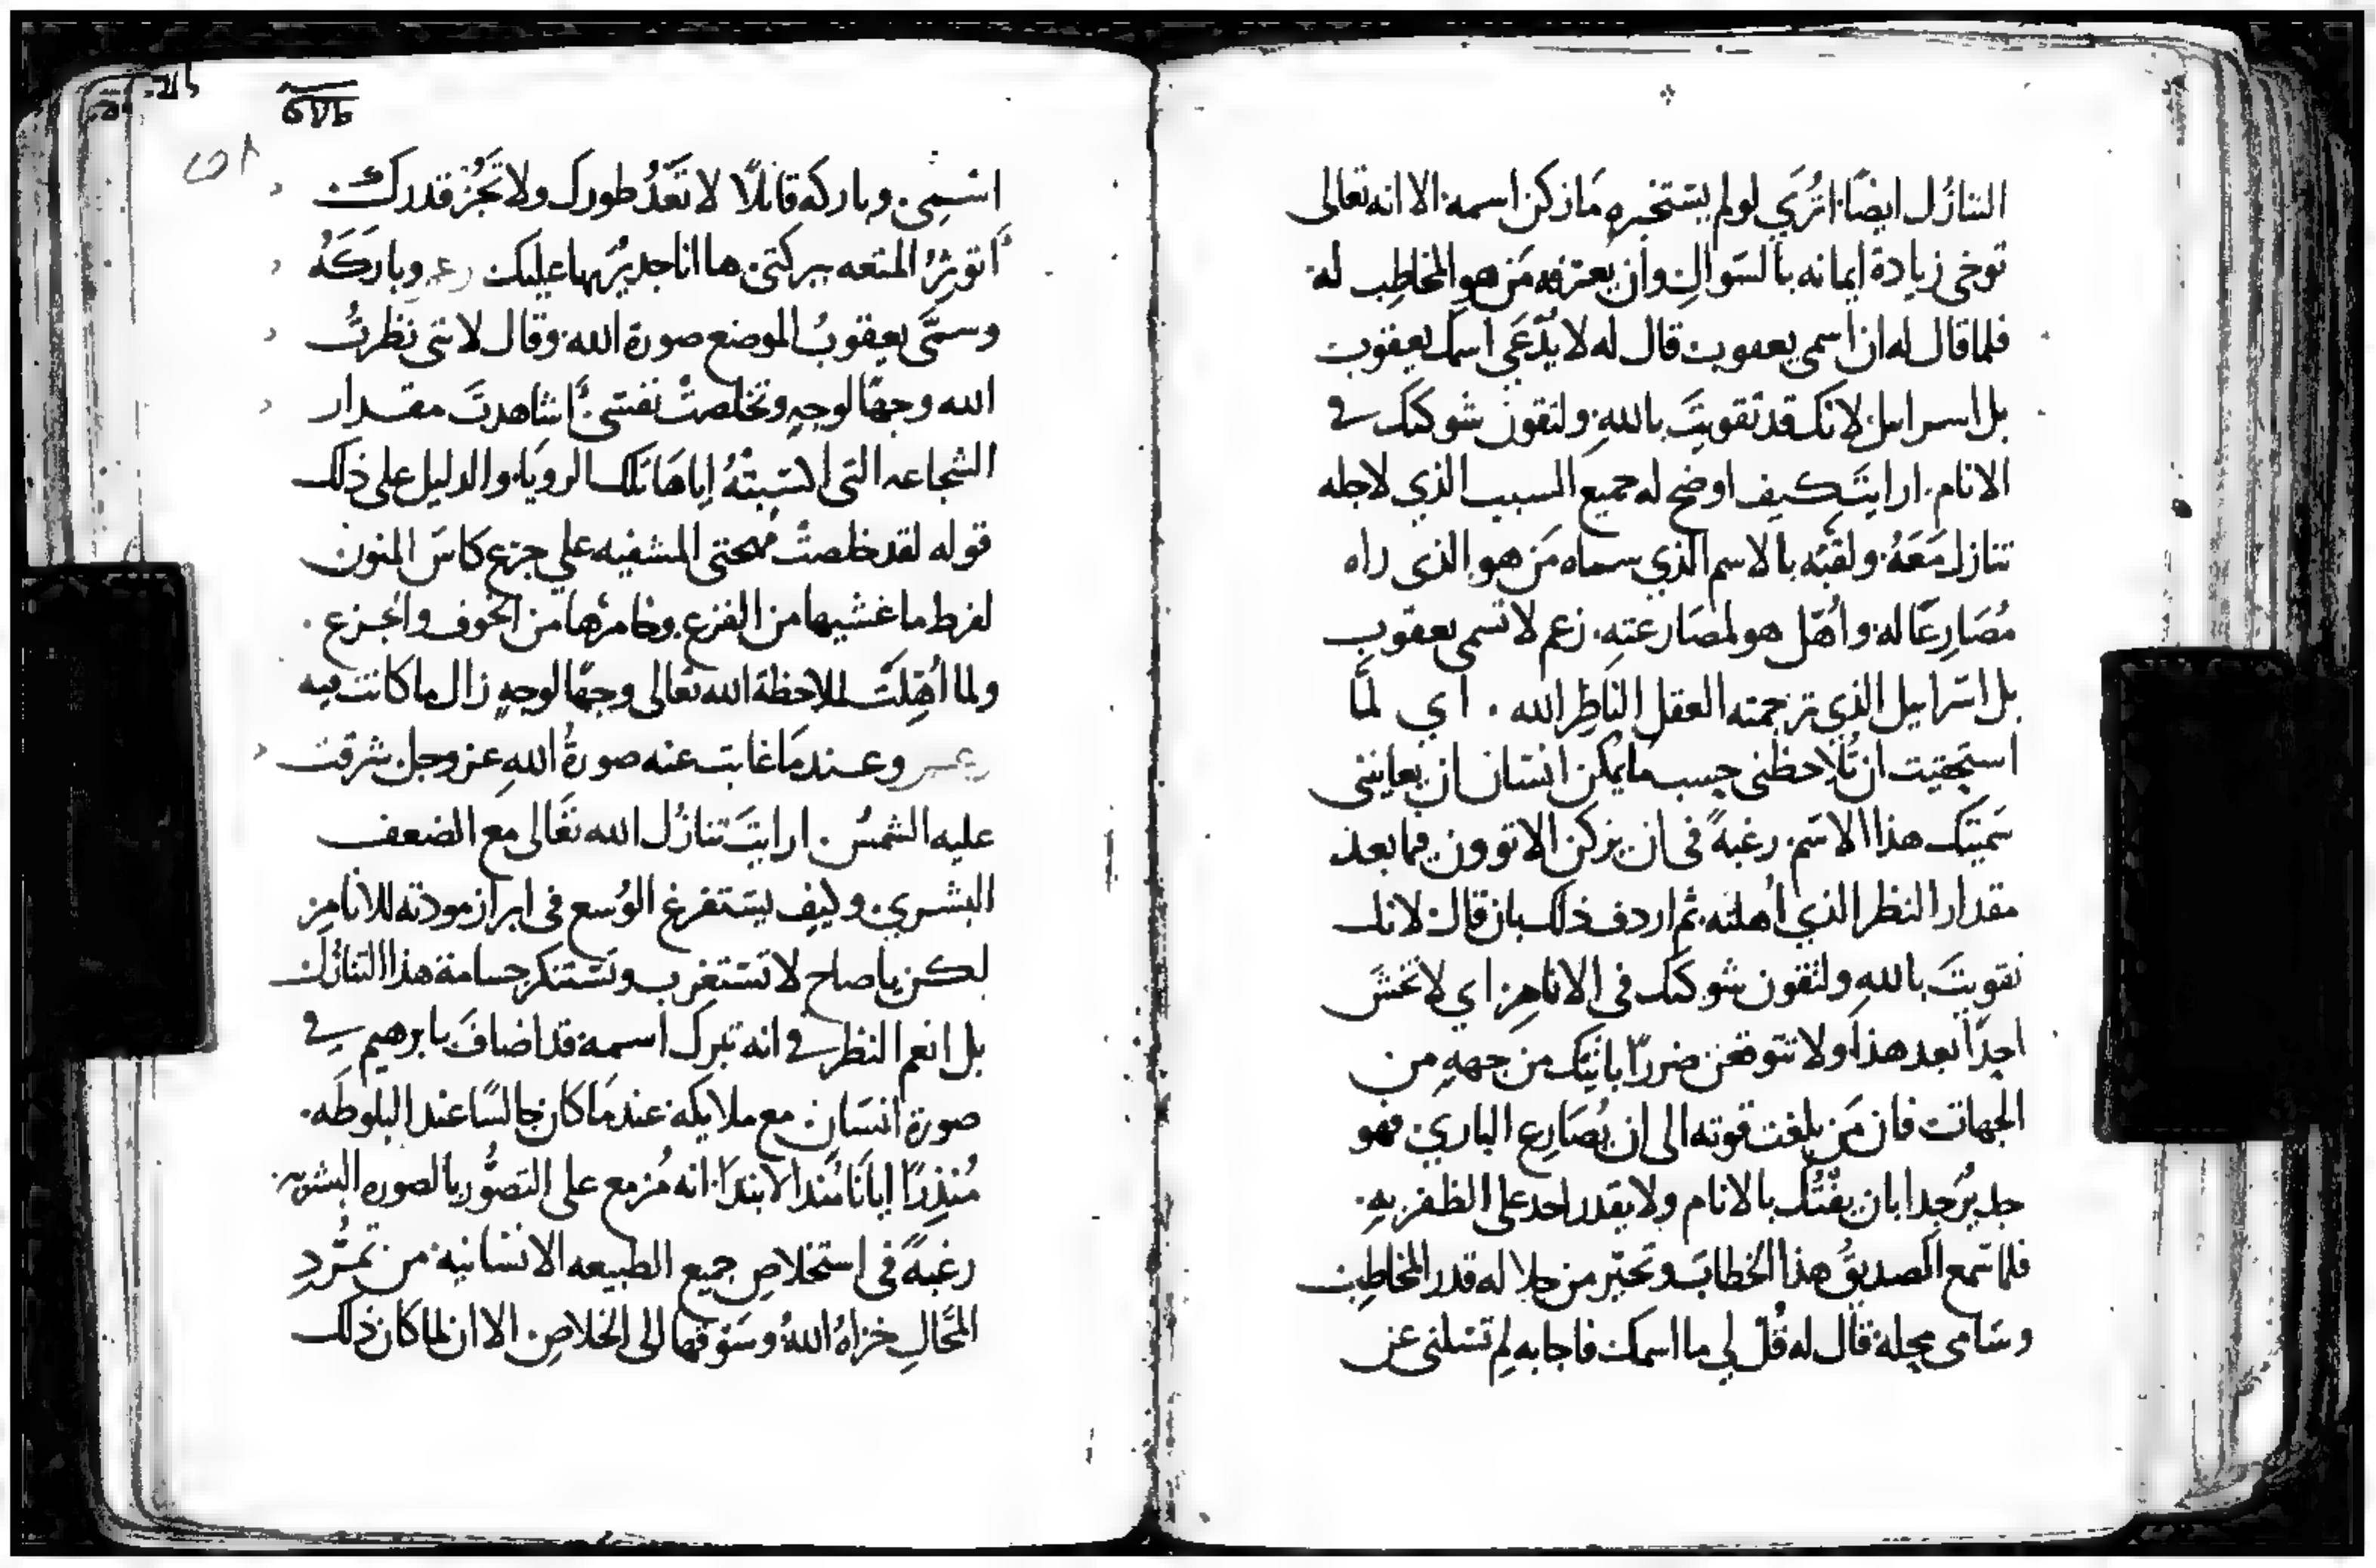 التنازل ايضًا اترَي لو لم يستخبره مَا زكن اسمه الا انه تعالى
توخى زيادة ايمانه بالسوالِ وان يعرفه مَن هو المخاطِب له
فلما قال له ان اسمى يعقوب قال له لا يُدّعَي اسمك يعقوب
بل اسرايل لانك قد تقويتَ باللهِ ولتقون شوكتك في
الانام ارايتَ كيف اوضح له جميع السبب الذي لاجله
تنازل مَعَهُ ولقبّه بالاسم الذي سماه مَن هو الذى راه
مُصَارِعًا له واُهّل هو لمصَارعته زعم لا تسمى يعقوب
بل اسراييل الذى ترجمته العقل الناظِر الله اي لمّا
استحقيت ان تُلاحظنى حسب ما يمكن انسان ان يعايننى
سَميّتك هذا الاسم رغبةً في ان يزكن الاتوون فما بعد
مقدار النظر الذي اُهلته ثم اردف ذلك بان قال لانك
تقويتَ باللهِ ولتقون شوكتك فى الانام اي لا تخشَ
احدًا بعد هذا ولا تتوقعن ضررًا ياتيك من جهةِ من
الجهات فان مَن بلغت قوته الى ان يُصَارِع الباري فهو
جديرٌ جدا بان يفتُك بالانام ولا يقدر احد على الظفر بهِ
فلما سمع الصديقُ هذا الخطابَ وتحيّر من جلاله قدر المخاطِب
وسَامى محله قال له قُل لي ما اسمك فاجابه لِم تسلنى عن
ⲥ̅ⲛ̅ⲏ̅
اسمِى وباركه قائلًا لا تَعَدُّ طورك ولا تَجُز قدرك
اتوثِرُ المتعه ببركتى ها انا جديرٌ بها عليك وبارَكَهُ
وسمَّى يعقوبُ الموضع صورة الله وقال لاننى نظرتُ
الله وجهًا لوجهٍ وتخلصتْ نفسى اشاهدتَ مقدار
الشجاعه التى اكتسبَتْهُ اِيَاهَا تلك الرويَا والدليل على ذلك
قوله لقد خلصتْ مُهجتى المشفيه علي جزع كاسَ المنون
لفرط ما غشيها من الفزع وخامرها من الخوف والجزع
ولما اُهّلتْ لملاحظة الله تعالى وجهًا لوجهٍ زال ما كانت فيه
وعندمَا غابت عنه صورةُ اللهِ عز وجل شرقت
عليه الشمسُ ارايتَ تنازُل الله تعَالى مع الضعف
البشري وكيف يستفرغ الوُسع فى ابراز مودته للانام
لكن يا صاح لا تستغرب وتستنكر جسامة هذا التنازل
بل انعم النظر في انه تبرك اسمه قد اضافَ بابرهيم في
صورة انسَان مع ملايكه عندمَا كان جالسًا عند البلوطَه
مُنذِرًا ايانَا مُنذ الابتدا انه مُزمع على التصوُّر بالصوره البشريه
رغبةً فى استخلاصِ جميع الطبيعه الانسانية من تمرُّدِ
المحَالِ خزاهُ اللهُ وسَوقها الى الخلاصِ الا ان لما كان ذلك